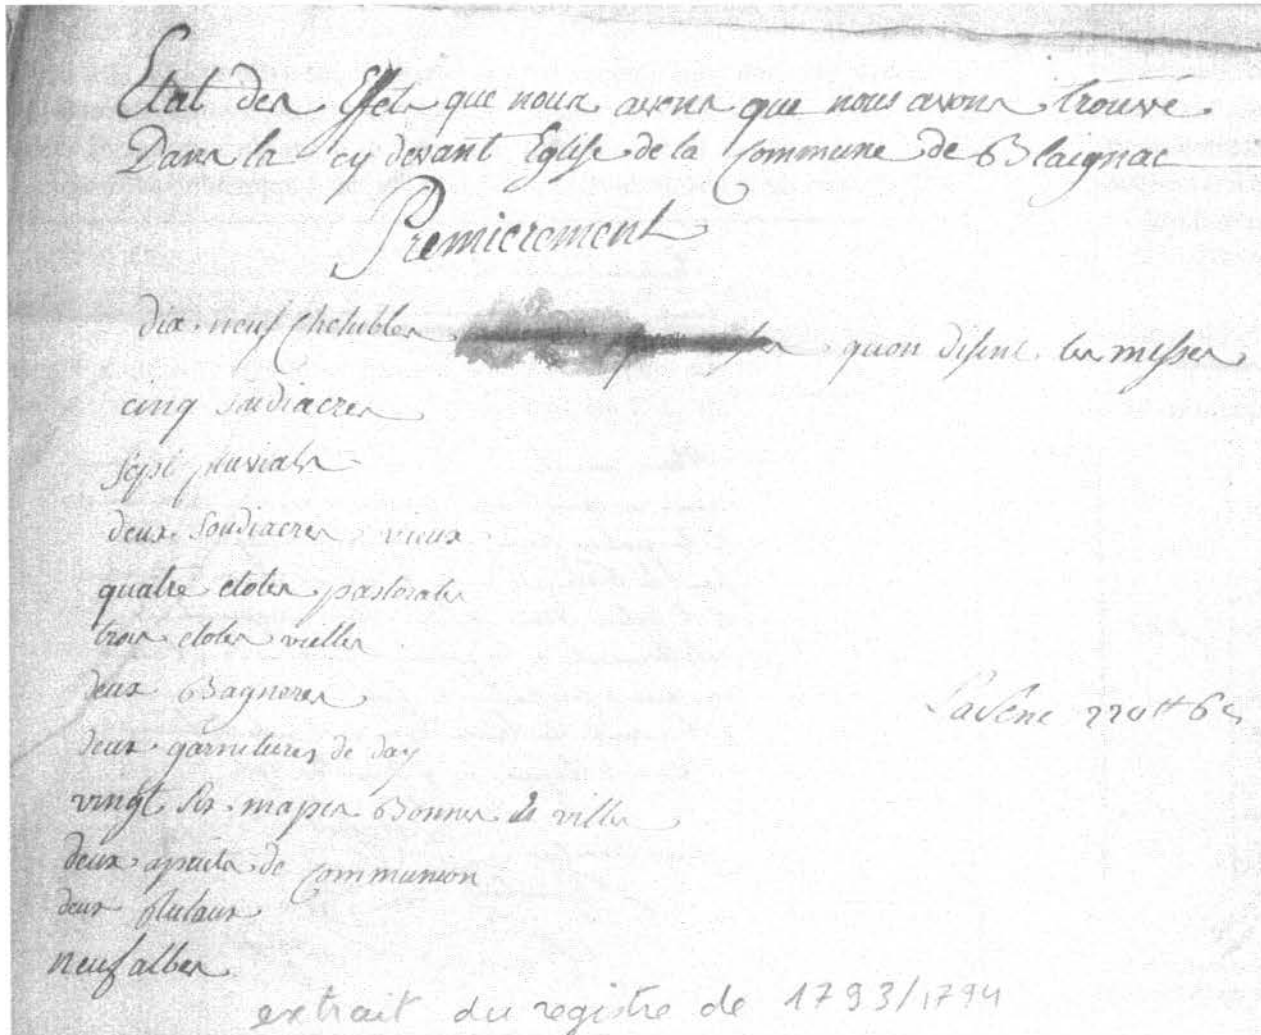 Etat des Effets que nous avons que nous avons trouvé
Dans la cy devant Eglise de la Commune de Blaignac
Premierement
dix neuf Chesubles quon disent les messes
cinq soudiacres
sept pluvials
deux soudiacres vieux
quatre etoles pastorales
trois etoles vielles
deux Bagneres
deux garnitures de day
vingt six mapes Bonnes
deux de Communion
deux
neuf albes
220tt 6s
extrait du registre de 1793/1794